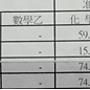 數學乙 化學
- 59.
- 15.
- 74.
- 74.